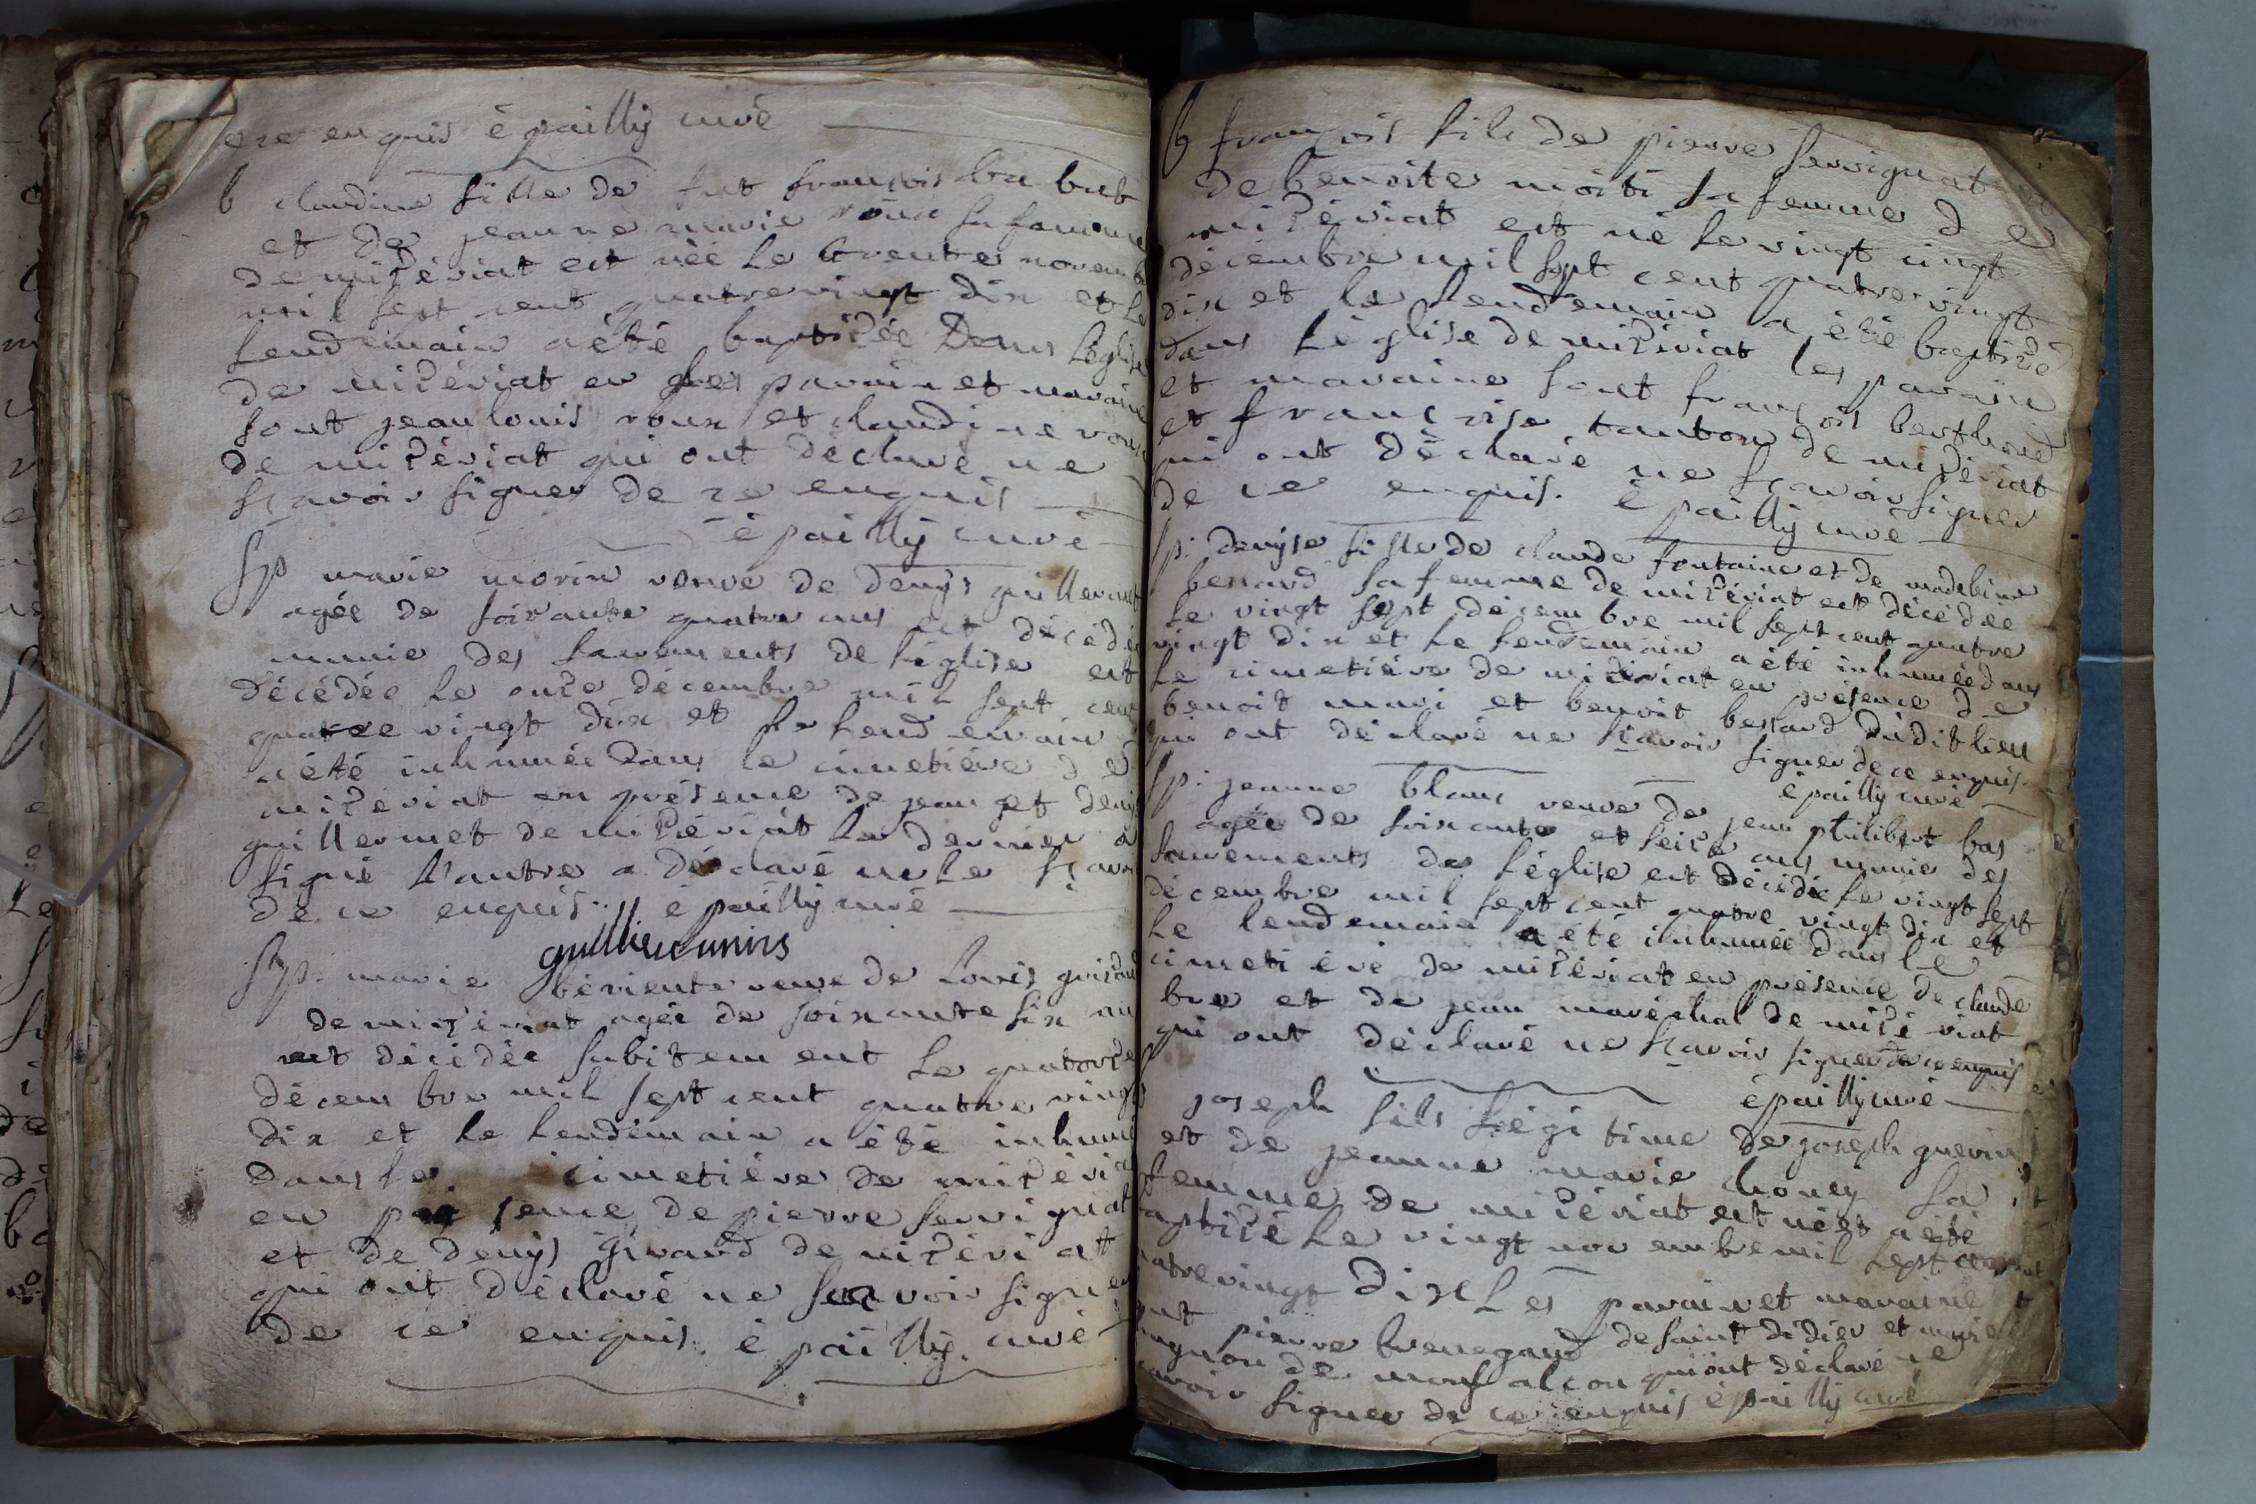 ce enquis é pailly curé
b claudine fille de fut françois
et de jeanne marie roux sa femme
de mizériat est née le trente novemb
mil sept cent quatrevingt dix et le
lendemain a été baptizée Dans l'église
de mizériat les parain et maraine
sont jean louis roux et claudine roux
de mizériat qui ont déclaré ne
sçavoir signer de ce enquis
é pailly curé
Sp marie morin veuve de denys guillermet
agée de soixante quatre ans est décédée
munie des sacrements de l'église est
décédée le onze décembre mil sept cent
quatre vingt dix et le lendemain
a été inhumée Dans le cimetière de
mizériat en présence de jean et denys
guillermet de mizériat le dernier a
signé l'autre a déclaré ne le sçavoir
de ce enquis. é pailly curé
Sp. marie veuve de Louis
de mizériat agée de soixante six an
est décédée subitement le quatorze
décembre mil sept cent quatre vingt
dix et le lendemain a été inhumé
dans le cimetière de mizéria
en présence de pierre servignat
et de denys girard de mizériat
qui ont déclaré ne scavoir signer
de ce enquis. é pailly. curé
b françois fils de pierre servignat et
de benoite moiti sa femme de
mizériat est né le vingt cingt
décembre mil sept cent quatre vingt
dix et le lendemain a été baptizé
dans l'église de mizériat les parain
et maraine sont françois berthoud
et françoise de mizériat
qui ont déclaré ne sçavoir signer
de ce enquis. é pailly curé
Sp. denyse fille de claude fontaine et de madeleine
benard sa femme de mizériat est décédée
le vingt sept décembre mil sept cent quatre
vingt dix et le lendemain a été inhumée dans
le cimetière de mizériat en présence de
benoit mari et benoit benard dudit lieu
qui ont déclaré ne sçavoir signer de ce enquis.
é pailly curé
Sp. jeanne blanc veuve de jean philibert bas
agée de soixante et seize ans munie des
sacrements de l'église est décédée le vingt sept
décembre mil sept cent quatre vingt dix et
le lendemain a été inhumée dans le
cimetière de mizériat en présence de claude
bre et de jean maréchal de mizériat
qui ont déclaré ne sçavoir signer de ce enquis
é pailly curé
joseph fils légitime de joseph guerin
et de jeanne marie sa
femme de mizériat est né et a été
baptizé le vingt novembre mil sept cent
quatrevingt dix Les parain et maraine
sont pierre de saint didier et marie
de monfalcon qui ont déclaré ne
sçavoir signer de ce enquis é pailly curé